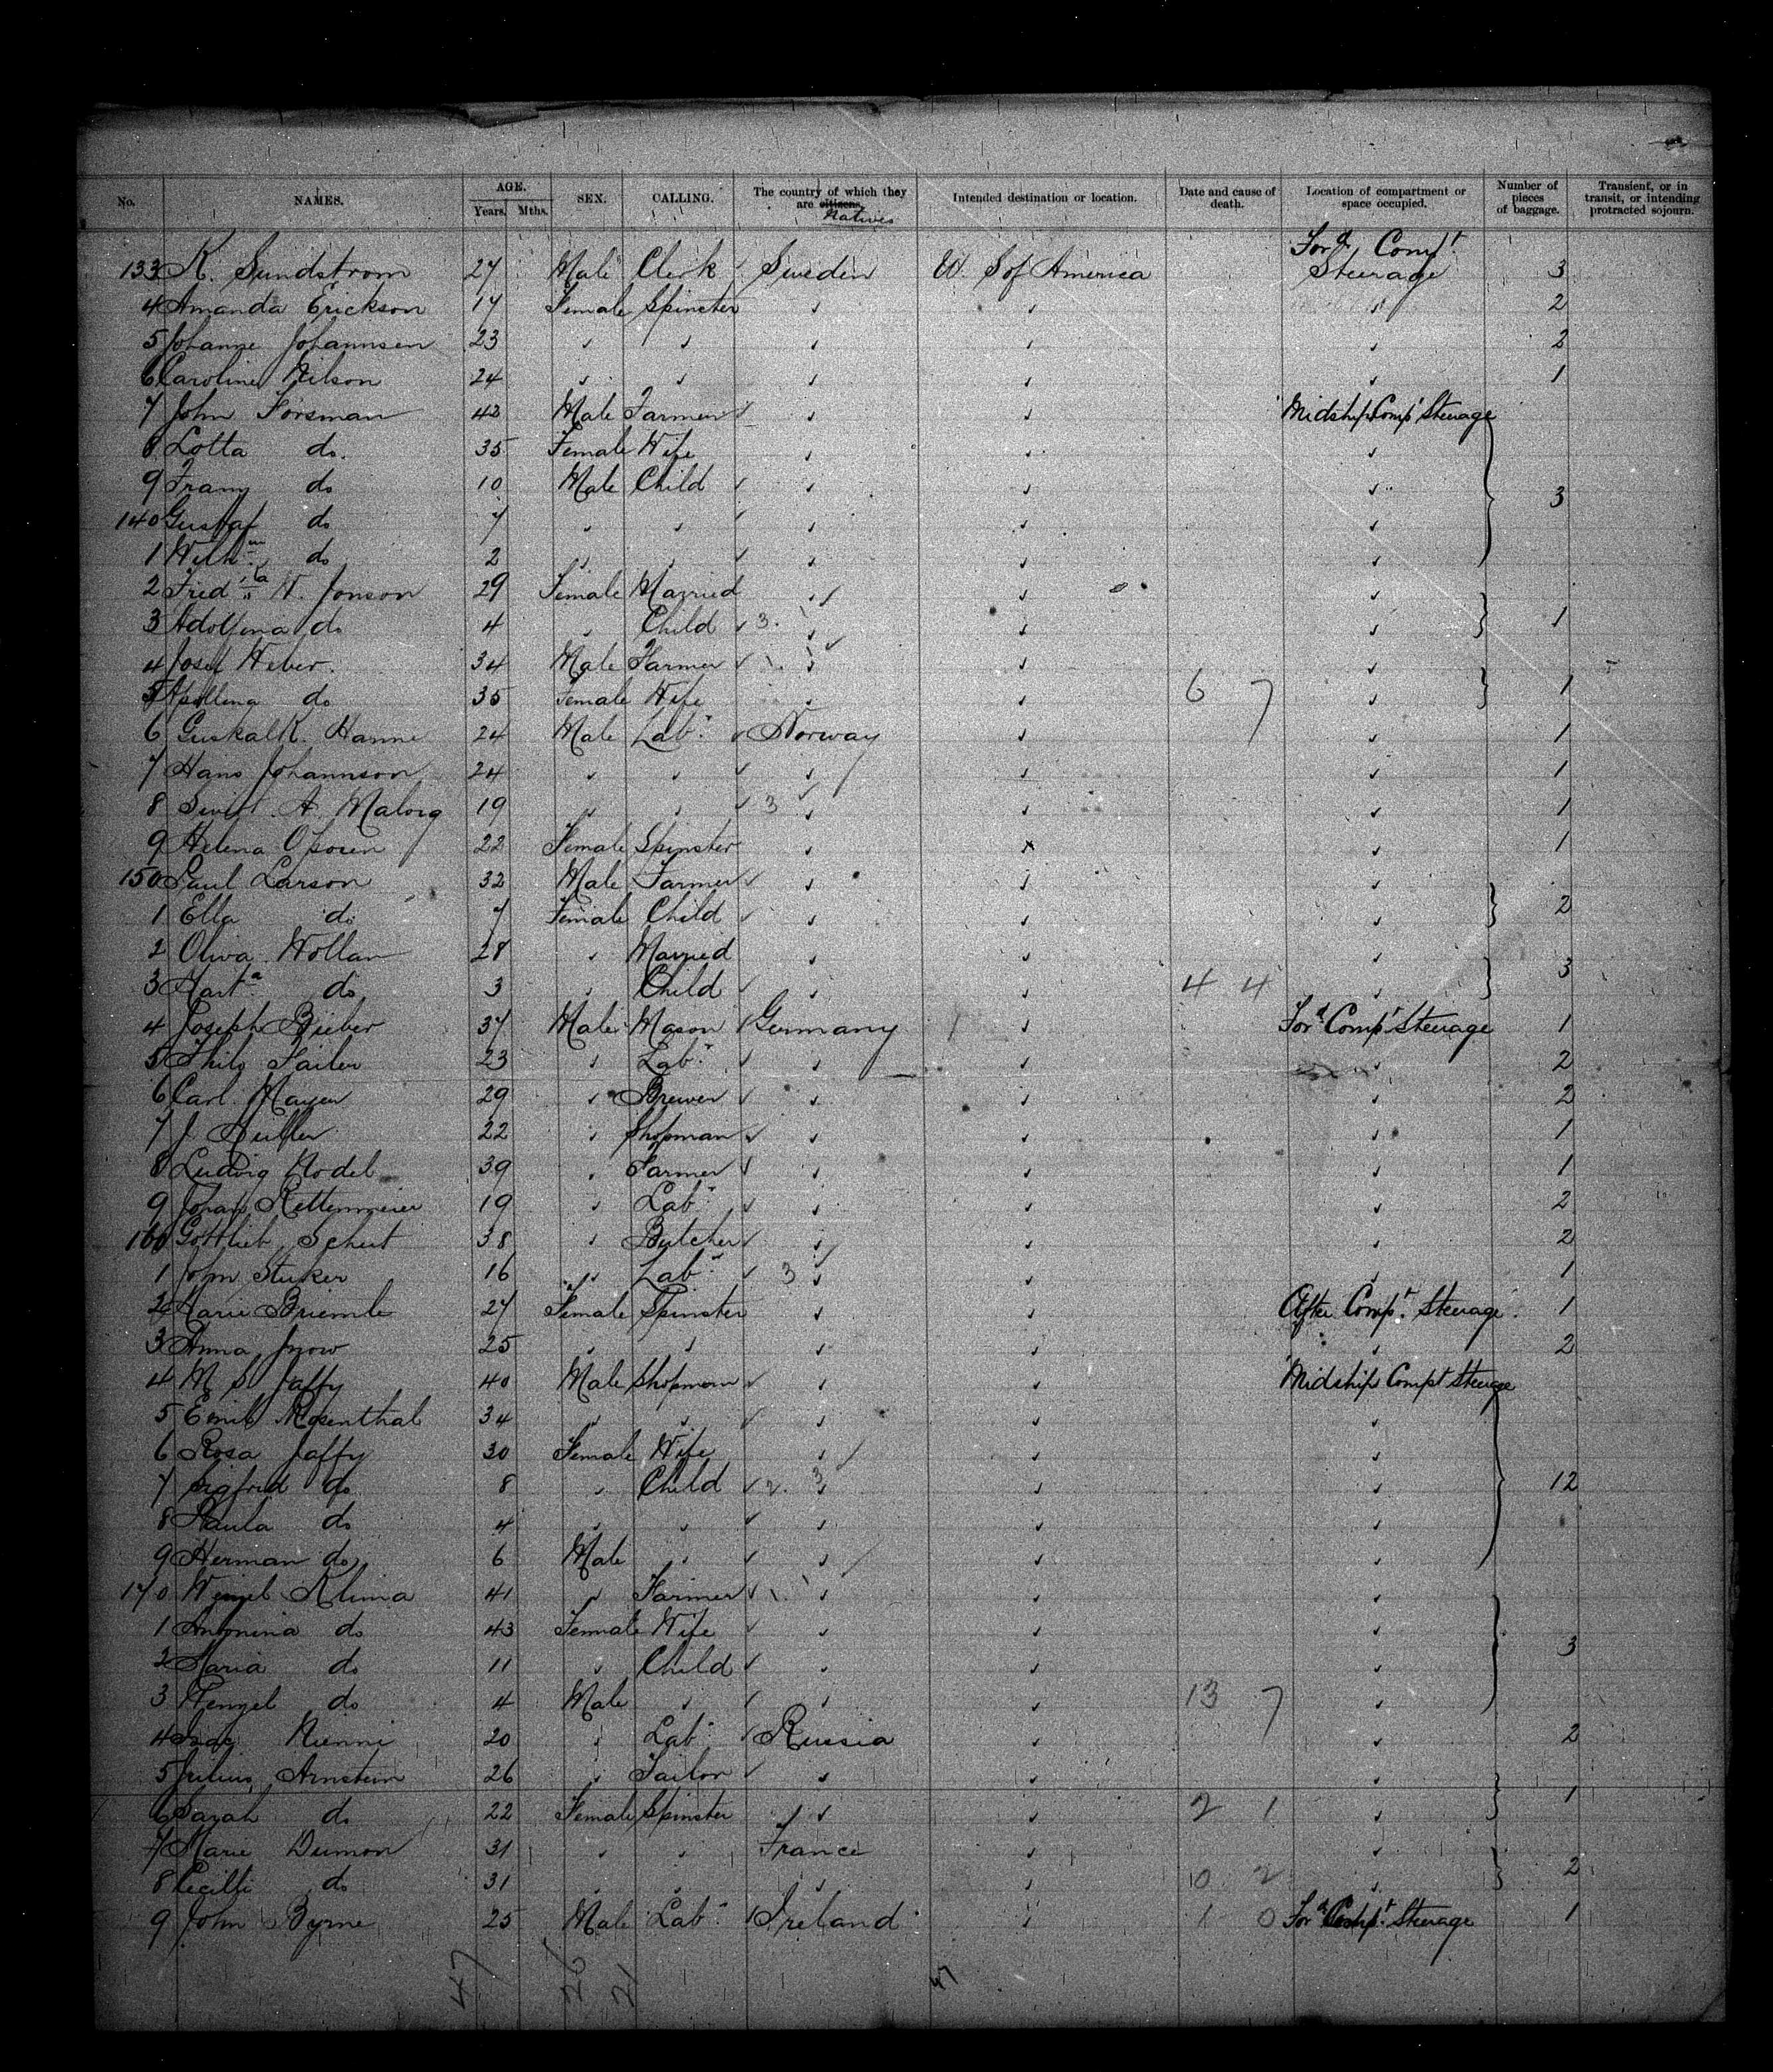 No. NAMES. AGE. Years. Mths. SEX. CALLING. The country of which they are citizens. Natives Intended destination or location. Date and cause of death. Location of compartment or space occupied. Number of pieces of baggage. Transient, or in transit, or intending protracted sojourn.
133 K. Sundstrom 27 Male Clerk Sweden U. S of America For^d Comp^t Steerage 3
4 Amanda Erickson 17 Female Spinster " " " 2
5 Johanne Johannsen 23 " " " " " 2
6 Caroline Nilson 24 " " " " " 1
7 John Forsman 42 Male Farmer " " Midship Comp^t Steerage
8 Lotta do. 35 Female Wife " " "
9 Franz do 10 Male Child " " " 3
140 Gustaf do 7 " " " " "
1 Wilh^m do 2 " " " " "
2 Fred^ka W. Jonson 29 Female Married " " "
3 Adolfina do 4 " Child 3 " " " 1
4 Josef Weber. 34 Male Farmer 1 " " "
5 Apollina do 35 Female Wife " " 6 7 " 1
6 Hanne 24 Male Lab^r Norway " " 1
7 Hans Johannson 24 " " " " " 1
8 A. Malorg 19 " " 3 " " " 1
9 Helena Oposen 22 Female Spinster " " " 1
150 Paul Larson 32 Male Farmer " " "
1 Ella do 7 Female Child " " " 2
2 Oliva Wollan 28 " Married " " "
3 Mart^a do 3 " Child " " 4 4 " 3
4 Joseph Bieber 37 Male Mason Germany " For^d Comp^t Steerage 1
5 Thilo Sailer 23 " Lab^r " " " 2
6 Carl Mayer 29 " Brewer " " " 2
7 J. 22 " Shopman " " " 1
8 Ludwig Nodel 39 " Farmer " " " 1
9 Johan Kettenmeier 19 " Lab^r " " " 2
160 Gottlieb Schut 38 " Butcher " " " 2
1 John Stuker 16 " Lab^r 3 " " " 1
2 Marie Briemle 27 Female Spinster " " After Comp^t Steerage. 1
3 Anna 25 " " " " " 2
4 M S Jaffy 40 Male Shopman " " Midship Comp^t Steerage
5 Emil Rosenthal 34 " " " " "
6 Rosa Jaffy 30 Female Wife " " "
7 Sigfrid do 8 " Child 2 3 " " " 12
8 Paula do 4 " " " " "
9 Herman do 6 Male " " " "
170 Wenzel Klima 41 " Farmer 1 " " "
1 Antonina do 43 Female Wife " " "
2 Maria do 11 " Child " " " 3
3 Wenzel do 4 Male " " " 13 7 "
4 Isac Nienni 20 " Lab^r Russia " " 2
5 Julius Arnstein 26 " Tailor " " "
6 Sarah do 22 Female Spinster " " 2 1 " 1
7 Marie Dumon 31 " " France " "
8 Cecilli do 31 " " " " 0 2 " 2
9 John Byrne 25 Male Lab^r Ireland " 1 0 For^d Comp^t Steerage 1
47 26 21 47